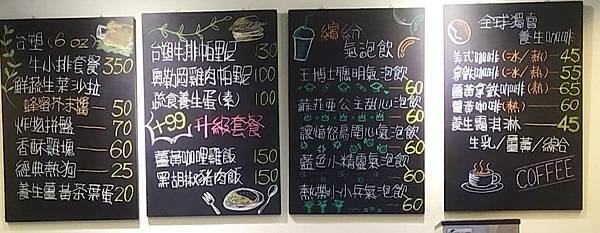 台塑(6 oz)
牛小排套餐 350
鮮蔬生菜沙拉
蜂蜜芥末醬 — 50
炸物拼盤 — 70
香酥雞塊 — 60
經典熱狗 — 25
養生薑黃茶葉蛋 20
台塑牛排帕里尼 130
奧勒岡雞肉帕里尼 100
蔬食養生蛋(素) 100
+99 升級套餐
薑黃咖哩雞飯 150
黑胡椒豬肉飯 150
繽紛
氣泡飲
王博士聰明氣泡飲
60
蘇菲亞公主甜心氣泡飲
60
讓憤怒鳥開心氣泡飲
60
藍色小精靈氣泡飲
60
熱帶小小兵氣泡飲
60
全球獨賣
養生咖啡
美式咖啡(冰/熱) 45
拿鐵咖啡(冰/熱) — 55
薑黃拿鐵咖啡(熱) — 65
薑黃咖啡(熱) — 60
養生霜淇淋 — 45
生乳/薑黃/綜合
COFFEE